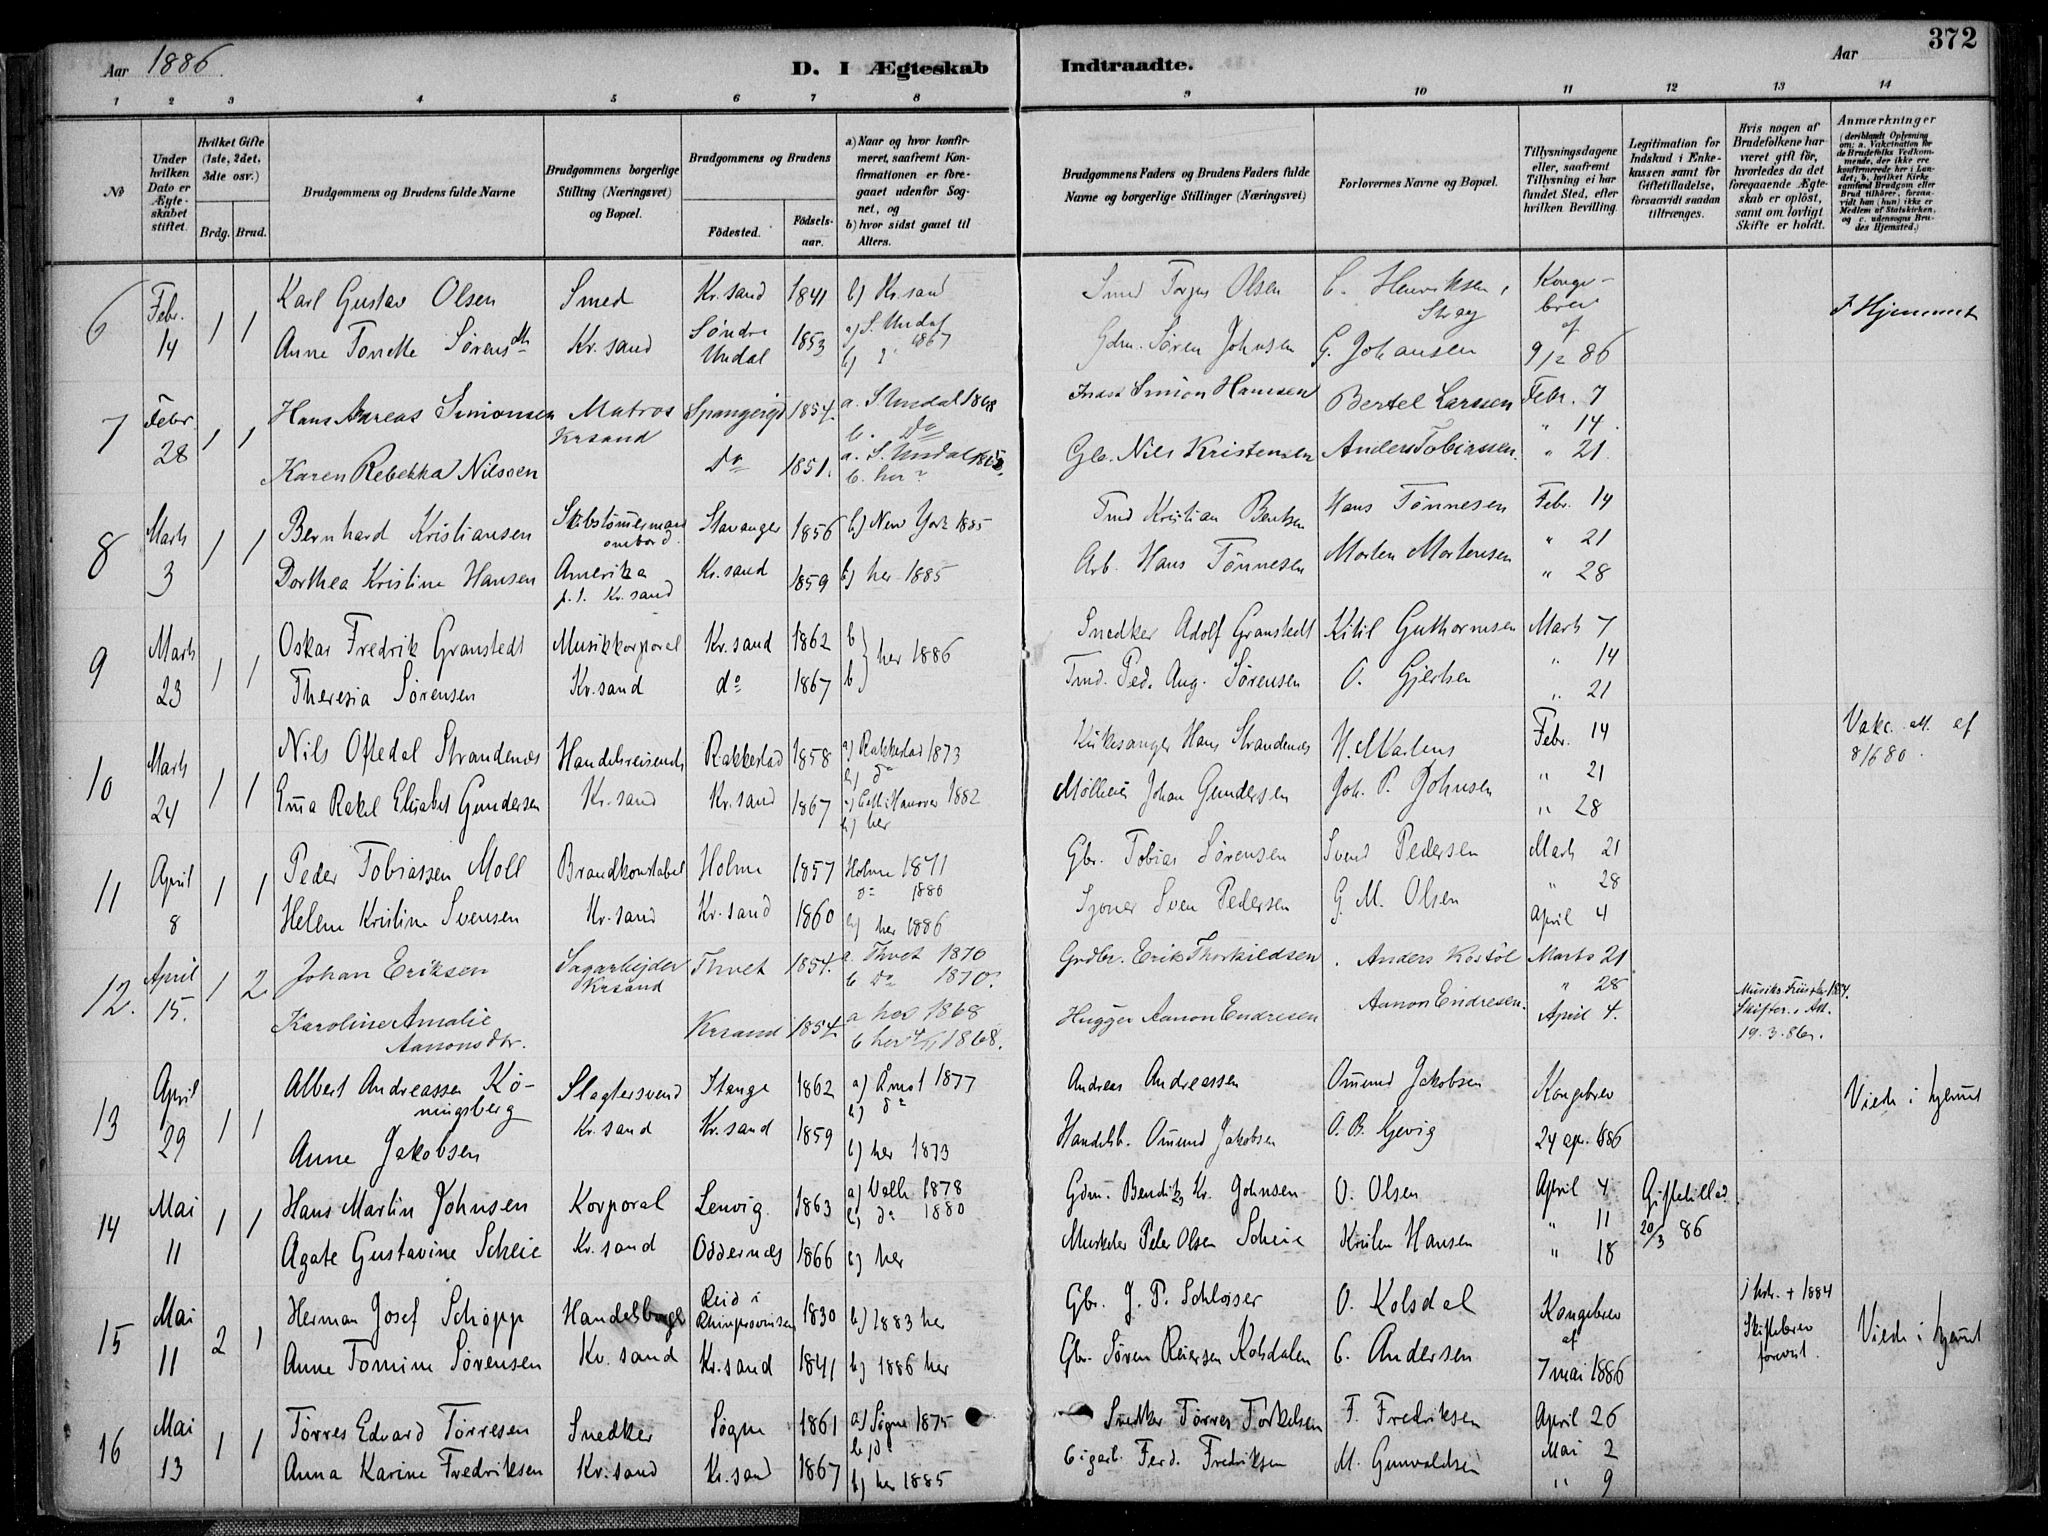 372
Aar 1886.
D. I Ægteskab Indtraadte.
Aar
1 2 3 4 5 6 7 8 9 10 11 12 13 14
No
Under hvilken Dato er Ægteskabet stiftet.
Hvilket Gifte (1ste, 2det, 3die osv.)
Brdg. Brud.
Brudgommens og Brudens fulde Navne
Brudgommens borgerlige Stilling (Næringsvei) og Bopæl.
Brudgommens og Brudens
Fødested. Fødselsaar.
a) Naar og hvor konfirmeret, saafremt Konfirmationen er foregaaet udenfor Sognet, og
b) hvor sidst gaaet til Alters.
Brudgommens Faders og Brudens Faders fulde Navne og borgerlige Stillinger (Næringsvei)
Forlovernes Navne og Bopæl.
Tillysningsdagene eller, saafremt Tillysning ei har fundet Sted, efter hvilken Bevilling.
Legitimation for Indskud i Enkekassen samt for Giftetilladelse, forsaavidt saadan tiltrænges.
Hvis nogen af Brudefolkene har været gift før, hvorledes da det foregaaende Ægteskab er opløst, samt om lovligt Skifte er holdt.
Anmærkninger (deriblandt Oplysning om; a. Vakcination for de Brudefolks Vedkommende, der ikke ere konfirmerede her i Landet; b. hvilket Kirkesamfund Brudgom eller Brud tilhører, forsaavidt han (hun) ikke er Medlem af Statskirken, og c. udensogns Brudes Hjemsted.)
6 Febr. 14 1 1
Karl Gustav Olsen Smed Kr.sand 1841 b) Kr.sand
Smed Torjus Olsen C. Henriksen, Stray Kongebrev af
I Hjemmet
Anne Tonette Sørensdtr Kr.sand Søndre Undal 1853 a) S. Undal 1867 b) do
Gdm. Søren Johnsen G. Johansen 9/2 86
7 Febr. 28 1 1
Hans Andreas Simonsen Matros Krsand Spangerigd 1854. a. S. Undal 1868 b. Do
Simon Hansen Bertel Larssen Febr. 7
" 14.
Karen Rebekka Nilssen Do 1851. a. S. Undal b. her
Gb. Nils Kristensen Anders Tobiassen. " 21
8 Marts 3 1 1
Bernhard Kristiansen Skibstømmermand ombord Stavanger 1856 b) New York 1885
Tmd Kristian Bentsen Hans Tønnesen Febr. 14
" 21
Dorthea Kristine Hansen Amerika p.t. Kr.sand Kr.sand 1859 b) her 1885
Arb. Hans Tønnesen Morten Mortensen " 28
9 Marts 23 1 1
Oskar Fredrik Granstedt Musikkorporal Kr.sand 1862 b
Snedker Adolf Granstedt Kitil Guthormsen Marts 7
her 1886
" 14
Theresia Sørensen Kr.sand do 1867 b
Tmd. Ped. Aug. Sørensen O. Gjertsen " 21
10 Marts 24 1 1
Nils Oftedal Strandenæs Handelsreisende Rakkestad 1858 a) Rakkestad 1873 b) do
Kirkesanger Hans Strandenæs H. Martens Febr. 14
Vakc. att. af 8/6 80.
" 21
Ema Rakel Elisabet Gundersen Kr.sand Kr.sand 1867 a) Celle Hanover 1882 b) her
Mølleeier Johan Gundersen Joh. P. Johnsen " 28
11 April 8 1 1
Peder Tobiassen Moll Brandkonstabel Holme 1857 Holme 1871 do 1880
Gbr. Tobias Sørensen Svend Pedersen Marts 21
" 28
Helene Kristine Svensen Kr.sand Kr.sand 1860 b) her 1886
Sven Pedersen G. M. Olsen April 4
12. April 15. 1 2
Johan Eriksen Sagarbejder Krsand Thvet 1854. a. Thvet 1870 b Do 1870.
Grdbr. Erik Thorkildsen Anders Kostøl Marts 21
" 28
Karoline Amalie Aanonsdtr. Krsand 1854 a hos 1868 b her 1868.
Hugger Aanon Endresen Aanon Endresen. April 4.
19.3.86.
13 April 29 1 1
Albert Andreassen Köningsberg Slagtersvend Stange 1862 a) Åmot 1877 b) do
Andreas Andreassen Omund Jakobsen Kongebrev
Viede i hjemmet
Anne Jakobsen Kr.sand Kr.sand 1859 b) her 1873
Handelsb. Omund Jakobsen O. B. Kjevig 24 apr. 1886
14 Mai 11 1 1
Hans Martin Johnsen Korporal Lenvig 1863 a) Valle 1878 b) do 1880
Gdm. Bendik Kr. Johnsen O. Olsen April 4
Giftetillad. 20/3 86
" 11
Agate Gustavine Scheie Kr.sand Oddernæs 1866 b) her
Musketer Peter Olsen Scheie Kristen Hansen " 18
15 Mai 11 2 1
Herman Josef Schöpp Handelsborgl i Rhinprovinsen 1830 b) 1883 her
Gbr. J. P. Schloiser O. Kolsdal Kongebrev af
+ 1884 Skiftebrev forevist.
Viede i hjemmet
Anne Tomine Sørensen Kr.sand Kr.sand 1841 b) 1886 her
Gbr. Søren Reiersen Kolsdalen C. Andersen 7 mai 1886
16 Mai 13 1 1
Tørres Edvard Tørresen Snedker Søgne 1861 a) Søgne 1875 b) do
Snedker Tørres Torkelsen F. Fredriksen April 26
Mai 2
Anna Karine Fredriksen Kr.sand Kr.sand 1867 b) her 1885
Cigarb. Ferd. Fredriksen M. Gunvaldsen " 9